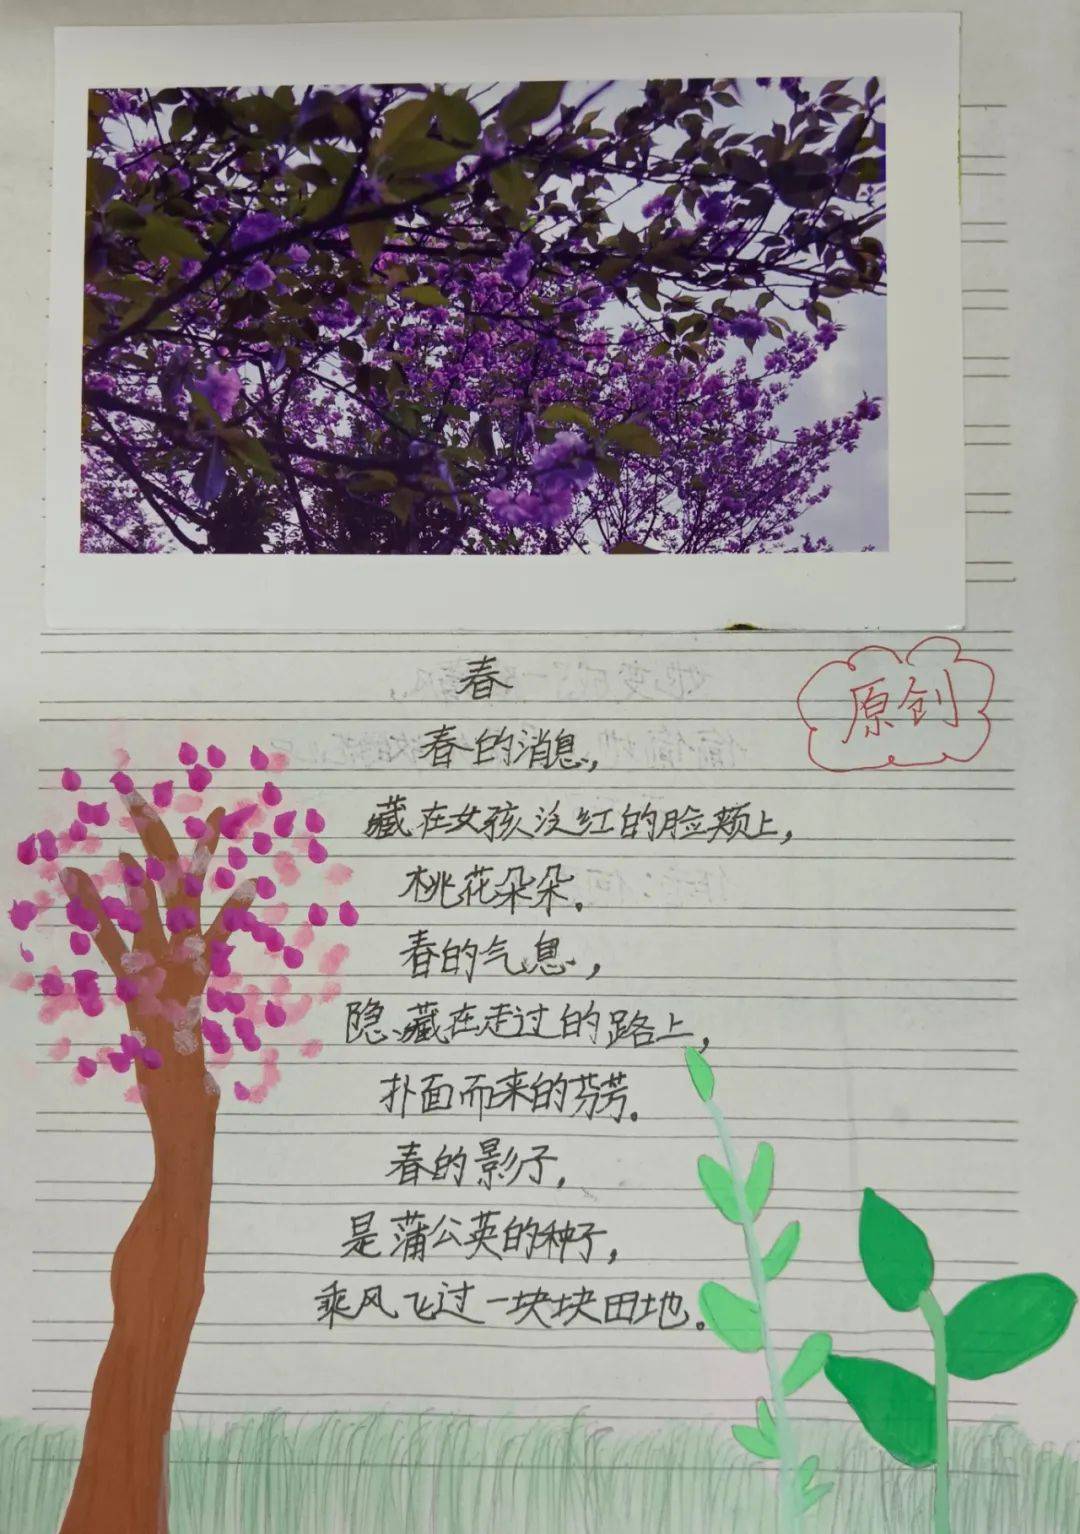 春
原创
春的消息，
藏在女孩泛红的脸颊上，
桃花朵朵。
春的气息，
隐藏在走过的路上，
扑面而来的芬芳。
春的影子，
是蒲公英的种子，
乘风飞过一块块田地。